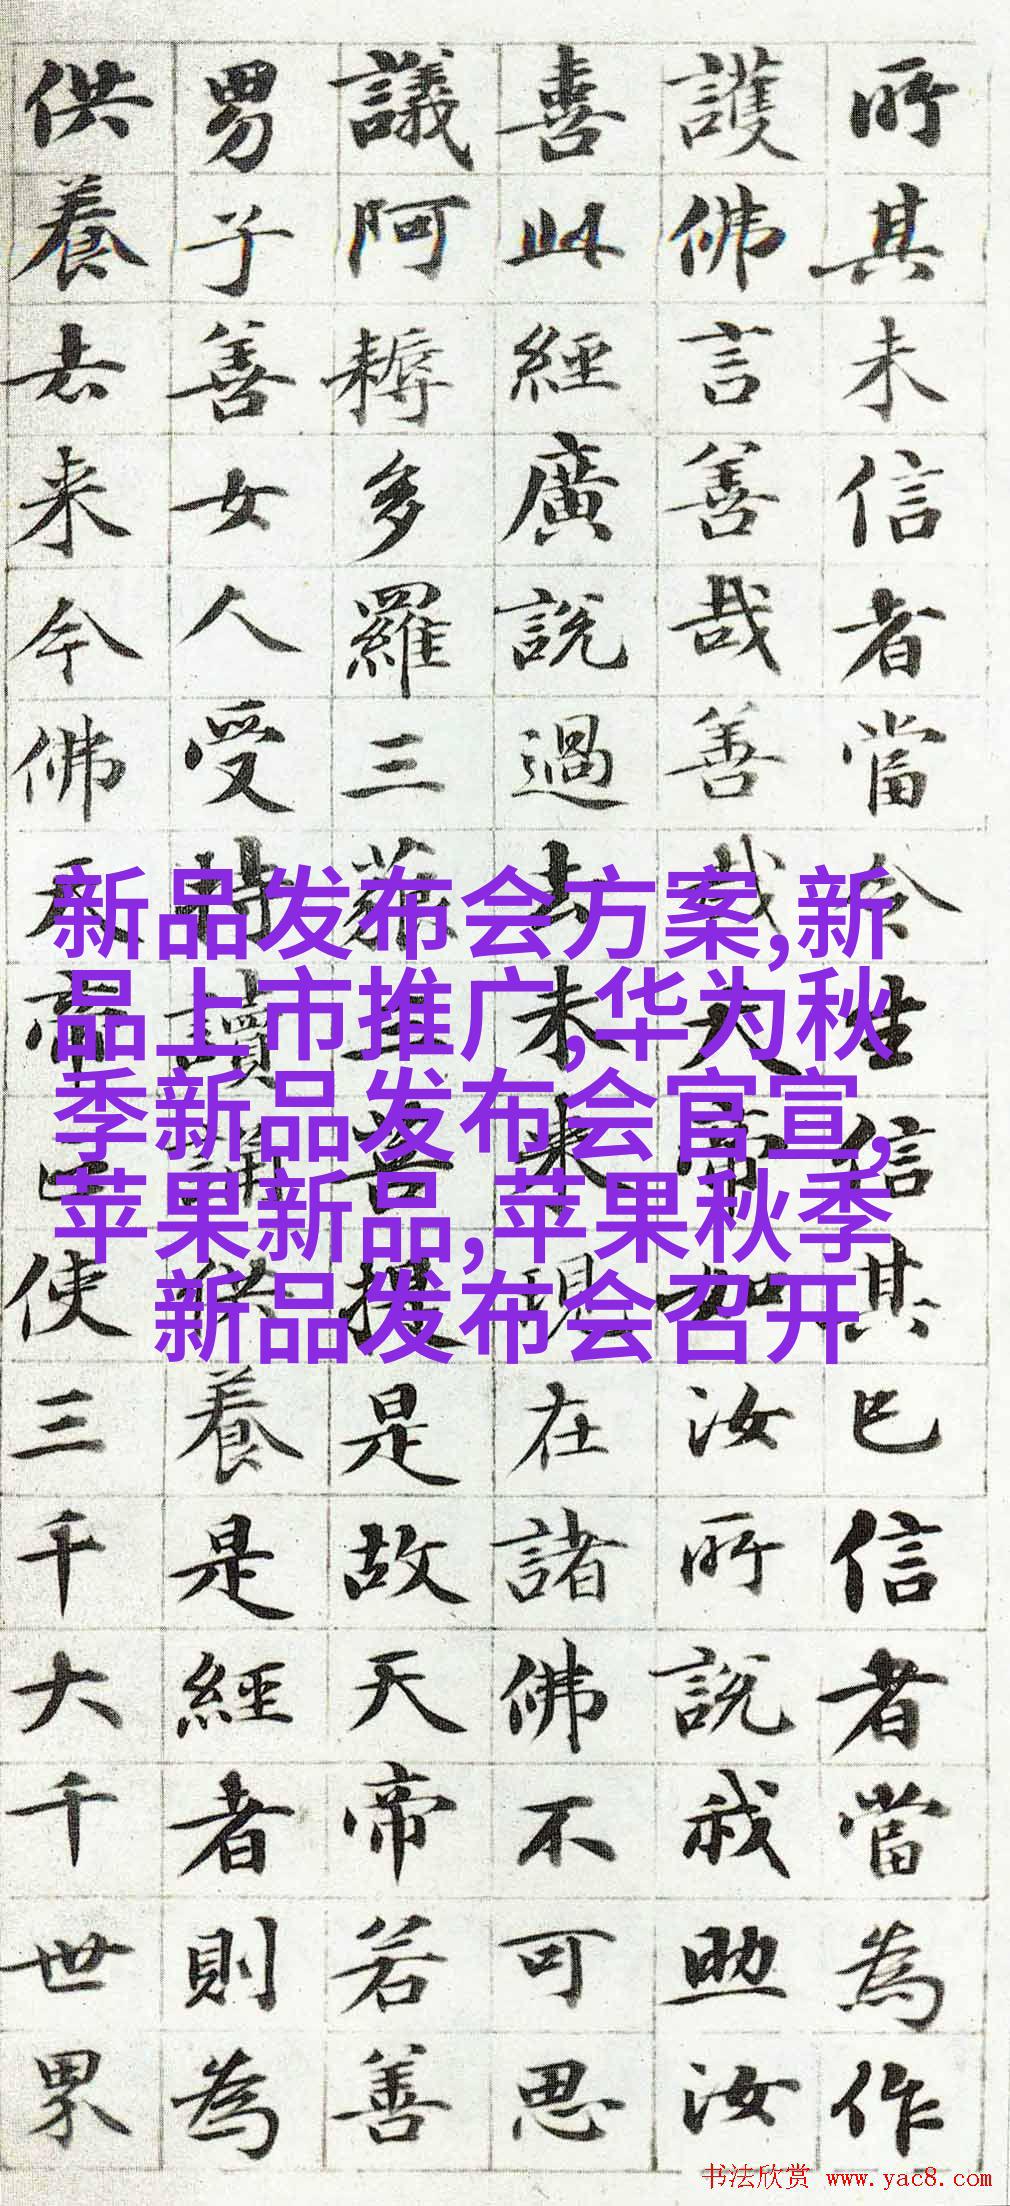 所其未信者當令生信其已信者當為作
護佛言善哉善哉天帝如汝所說我助汝
喜此經廣說過去未来現在諸佛不可思
議阿耨多羅三藐三菩提是故天帝若善
男子善女人受持讀誦供養是經者則為
供養去来今佛天帝正使三千大千世界
新品发布会方案,新
品上市推广,华为秋
季新品发布会官宣,
苹果新品,苹果秋季
新品发布会召开
书法欣赏 www.yac8.com